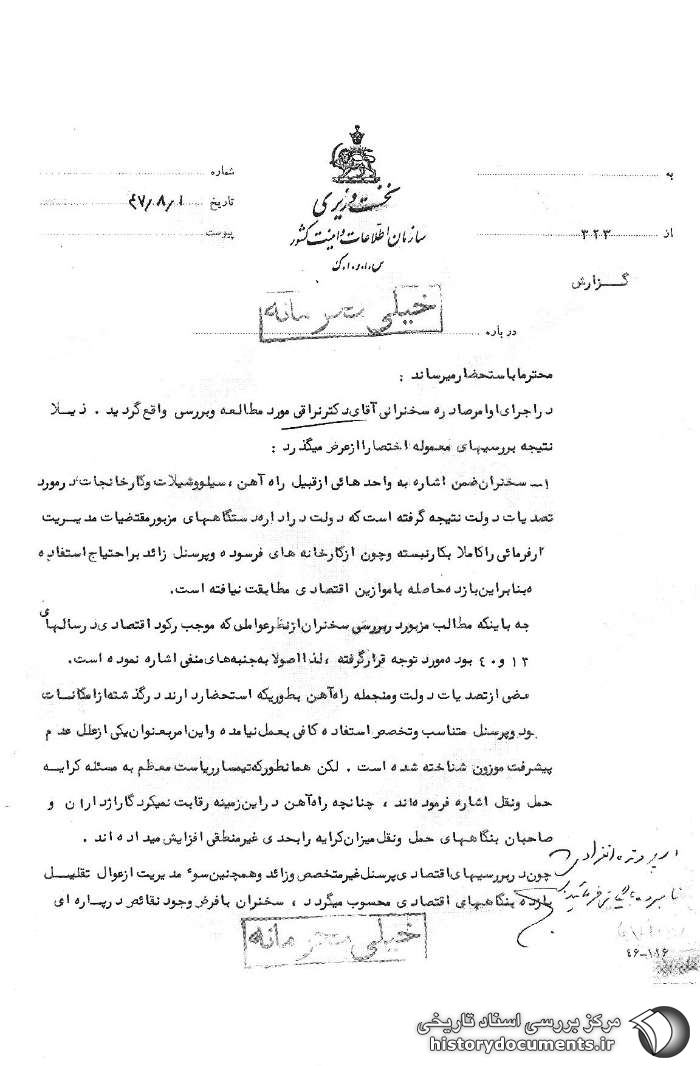 به
شماره
از ۳۲۳
تاریخ ۴۷/۸/۱
پیوست
نخست وزیری
سازمان اطلاعات و امنیت کشور
س.ا.و.ا.ک
گزارش
خیلی محرمانه
درباره
محترما باستحضار میرساند :
در اجرای اوامر صادره سخنرانی آقای دکتر نراقی مورد مطالعه و بررسی واقع گردید . ذیلا
نتیجه بررسیهای معموله اختصارا از عرض میگذرد :
۱ــ سخنران ضمن اشاره به واحد هائی از قبیل راه آهن ، سیلو و شیلات و کارخانجات در مورد
تصدیات دولت نتیجه گرفته است که دولت در اداره دستگاههای مزبور مقتضیات مدیریت
ارفرمائی را کاملا بکار نبسته و چون از کارخانه های فرسوده و پرسنل زائد بر احتیاج استفاده
ه بنابراین بازده حاصله با موازین اقتصادی مطابقت نیافته است.
جه باینکه مطالب مزبور در بررسی سخنران از نظر عواملی که موجب رکود اقتصادی در سالهای
و ۴۰ بوده مورد توجه قرار گرفته ، لذا اصولا به جنبه های منفی اشاره نموده است.
عضی از تصدیات دولت و منجمله راه آهن بطوریکه استحضار دارند در گذشته از امکانات
ود و پرسنل متناسب و تخصص استفاده کافی بعمل نیامده و این امر بعنوان یکی از علل عدم
پیشرفت موزون شناخته شده است . لکن همانطور که تیمسار ریاست معظم به مسئله کرایه
حمل و نقل اشاره فرموده اند ، چنانچه راه آهن در این زمینه رقابت نمیکرد گاراژداران و
صاحبان بنگاههای حمل و نقل میزان کرایه را بحدی غیرمنطقی افزایش میداده اند .
چون در بررسیهای اقتصادی پرسنل غیر متخصص و زائد و همچنین سوء مدیریت از عوامل تقلیل
بازده بنگاههای اقتصادی محسوب میگردد ، سخنران با فرض وجود نقائص در پاره ای
خیلی محرمانه
در پرونده انفرادی
۴۶-۱۱۶
مرکز بررسی اسناد تاریخی
historydocuments.ir